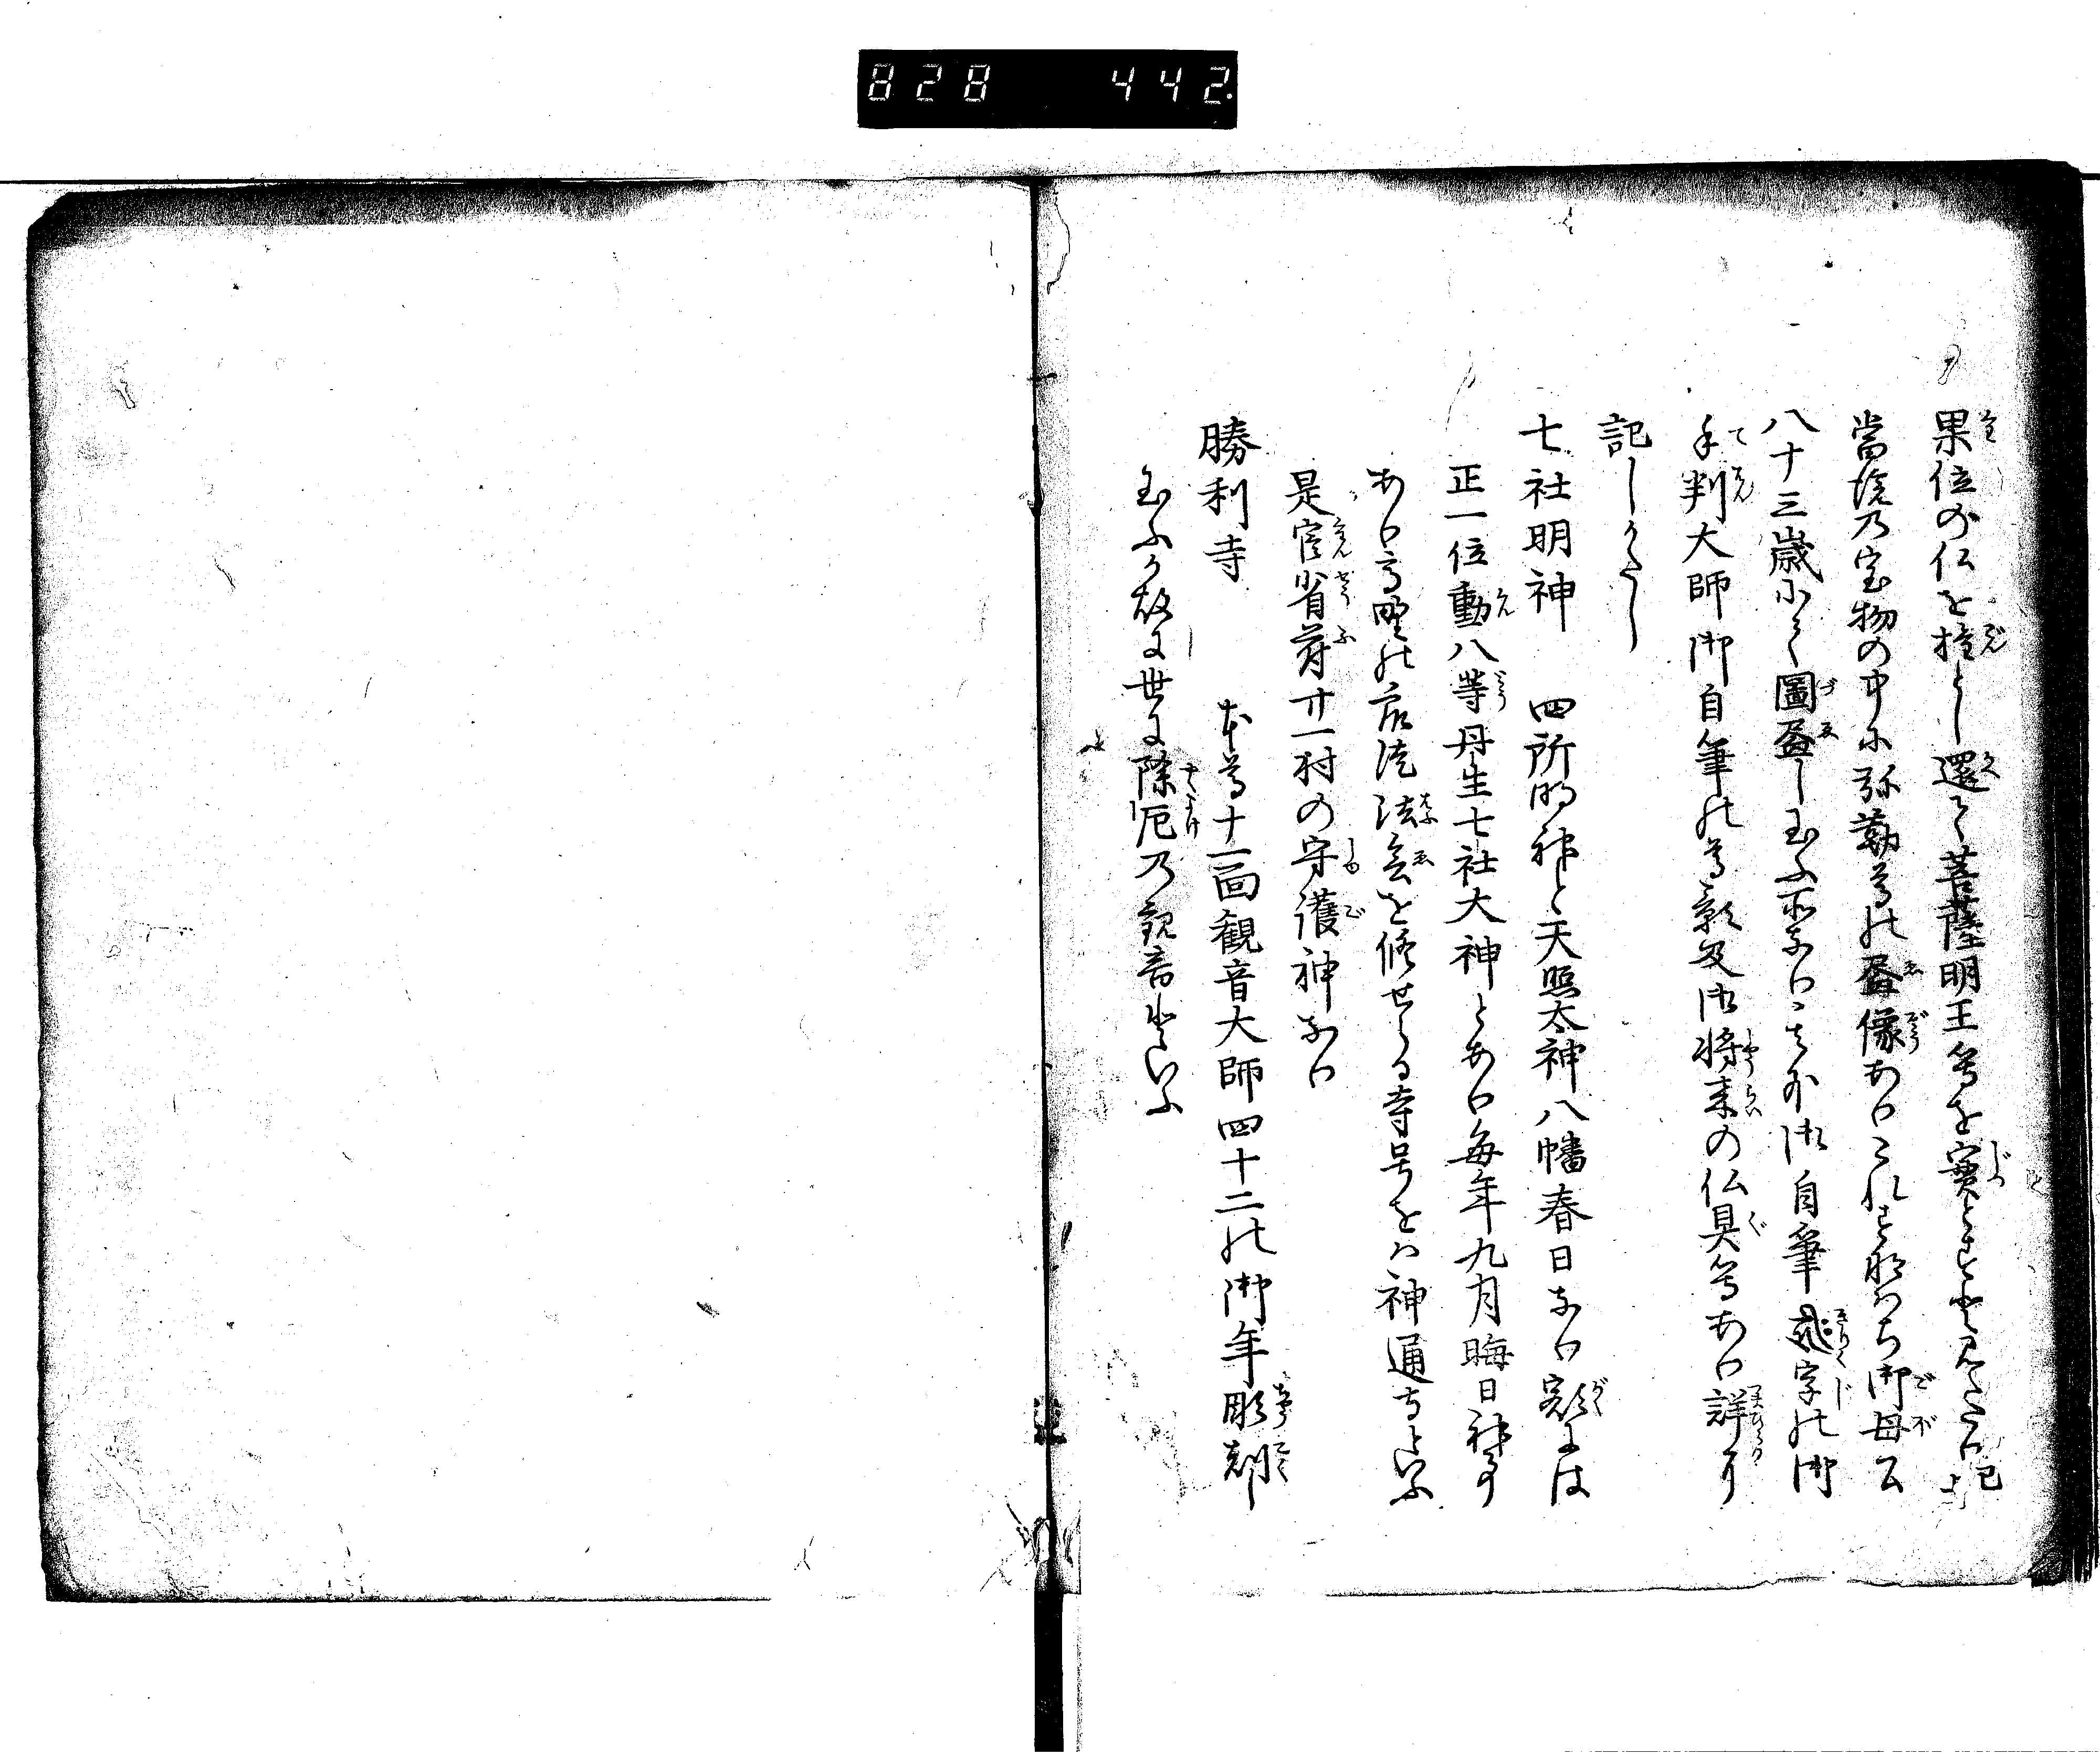 828 442.
果位の仏を権とし還て菩薩明王等を實とすと見えたり已上
當院乃宝物の中に弥勒尊の畫像ありこれすなはち御母公
八十三歳にて圖畫し玉ふ所なり又外御自筆字の御
手判大師御自筆の尊影及御将来の仏具等あり詳り
記しかたし
七社明神 四所明神と天照太神八幡春日なり額には
正一位勲八等丹生七社大神とあり毎年九月晦日神事
あり高野の衆徒法会を修せる寺号をハ神通寺といふ
是官省符廿一村の守護神なり
勝利寺 本尊十一面観音大師四十二の御年彫刻し
玉ふ故に世に除厄乃観音といふ